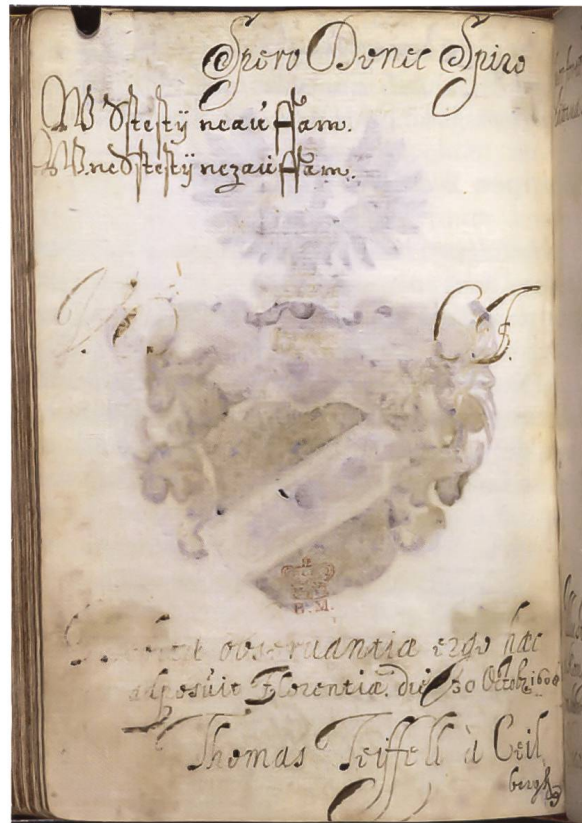 Spero Donec Spiro
W Sstestij neaúffam.
W.neSstestij nezaúffam.
G. F.
B. M.
observantiæ ergo hæc
adposúit Florentiæ. die 30 Octob:
Thomas Teÿffell à Ceil
bergk